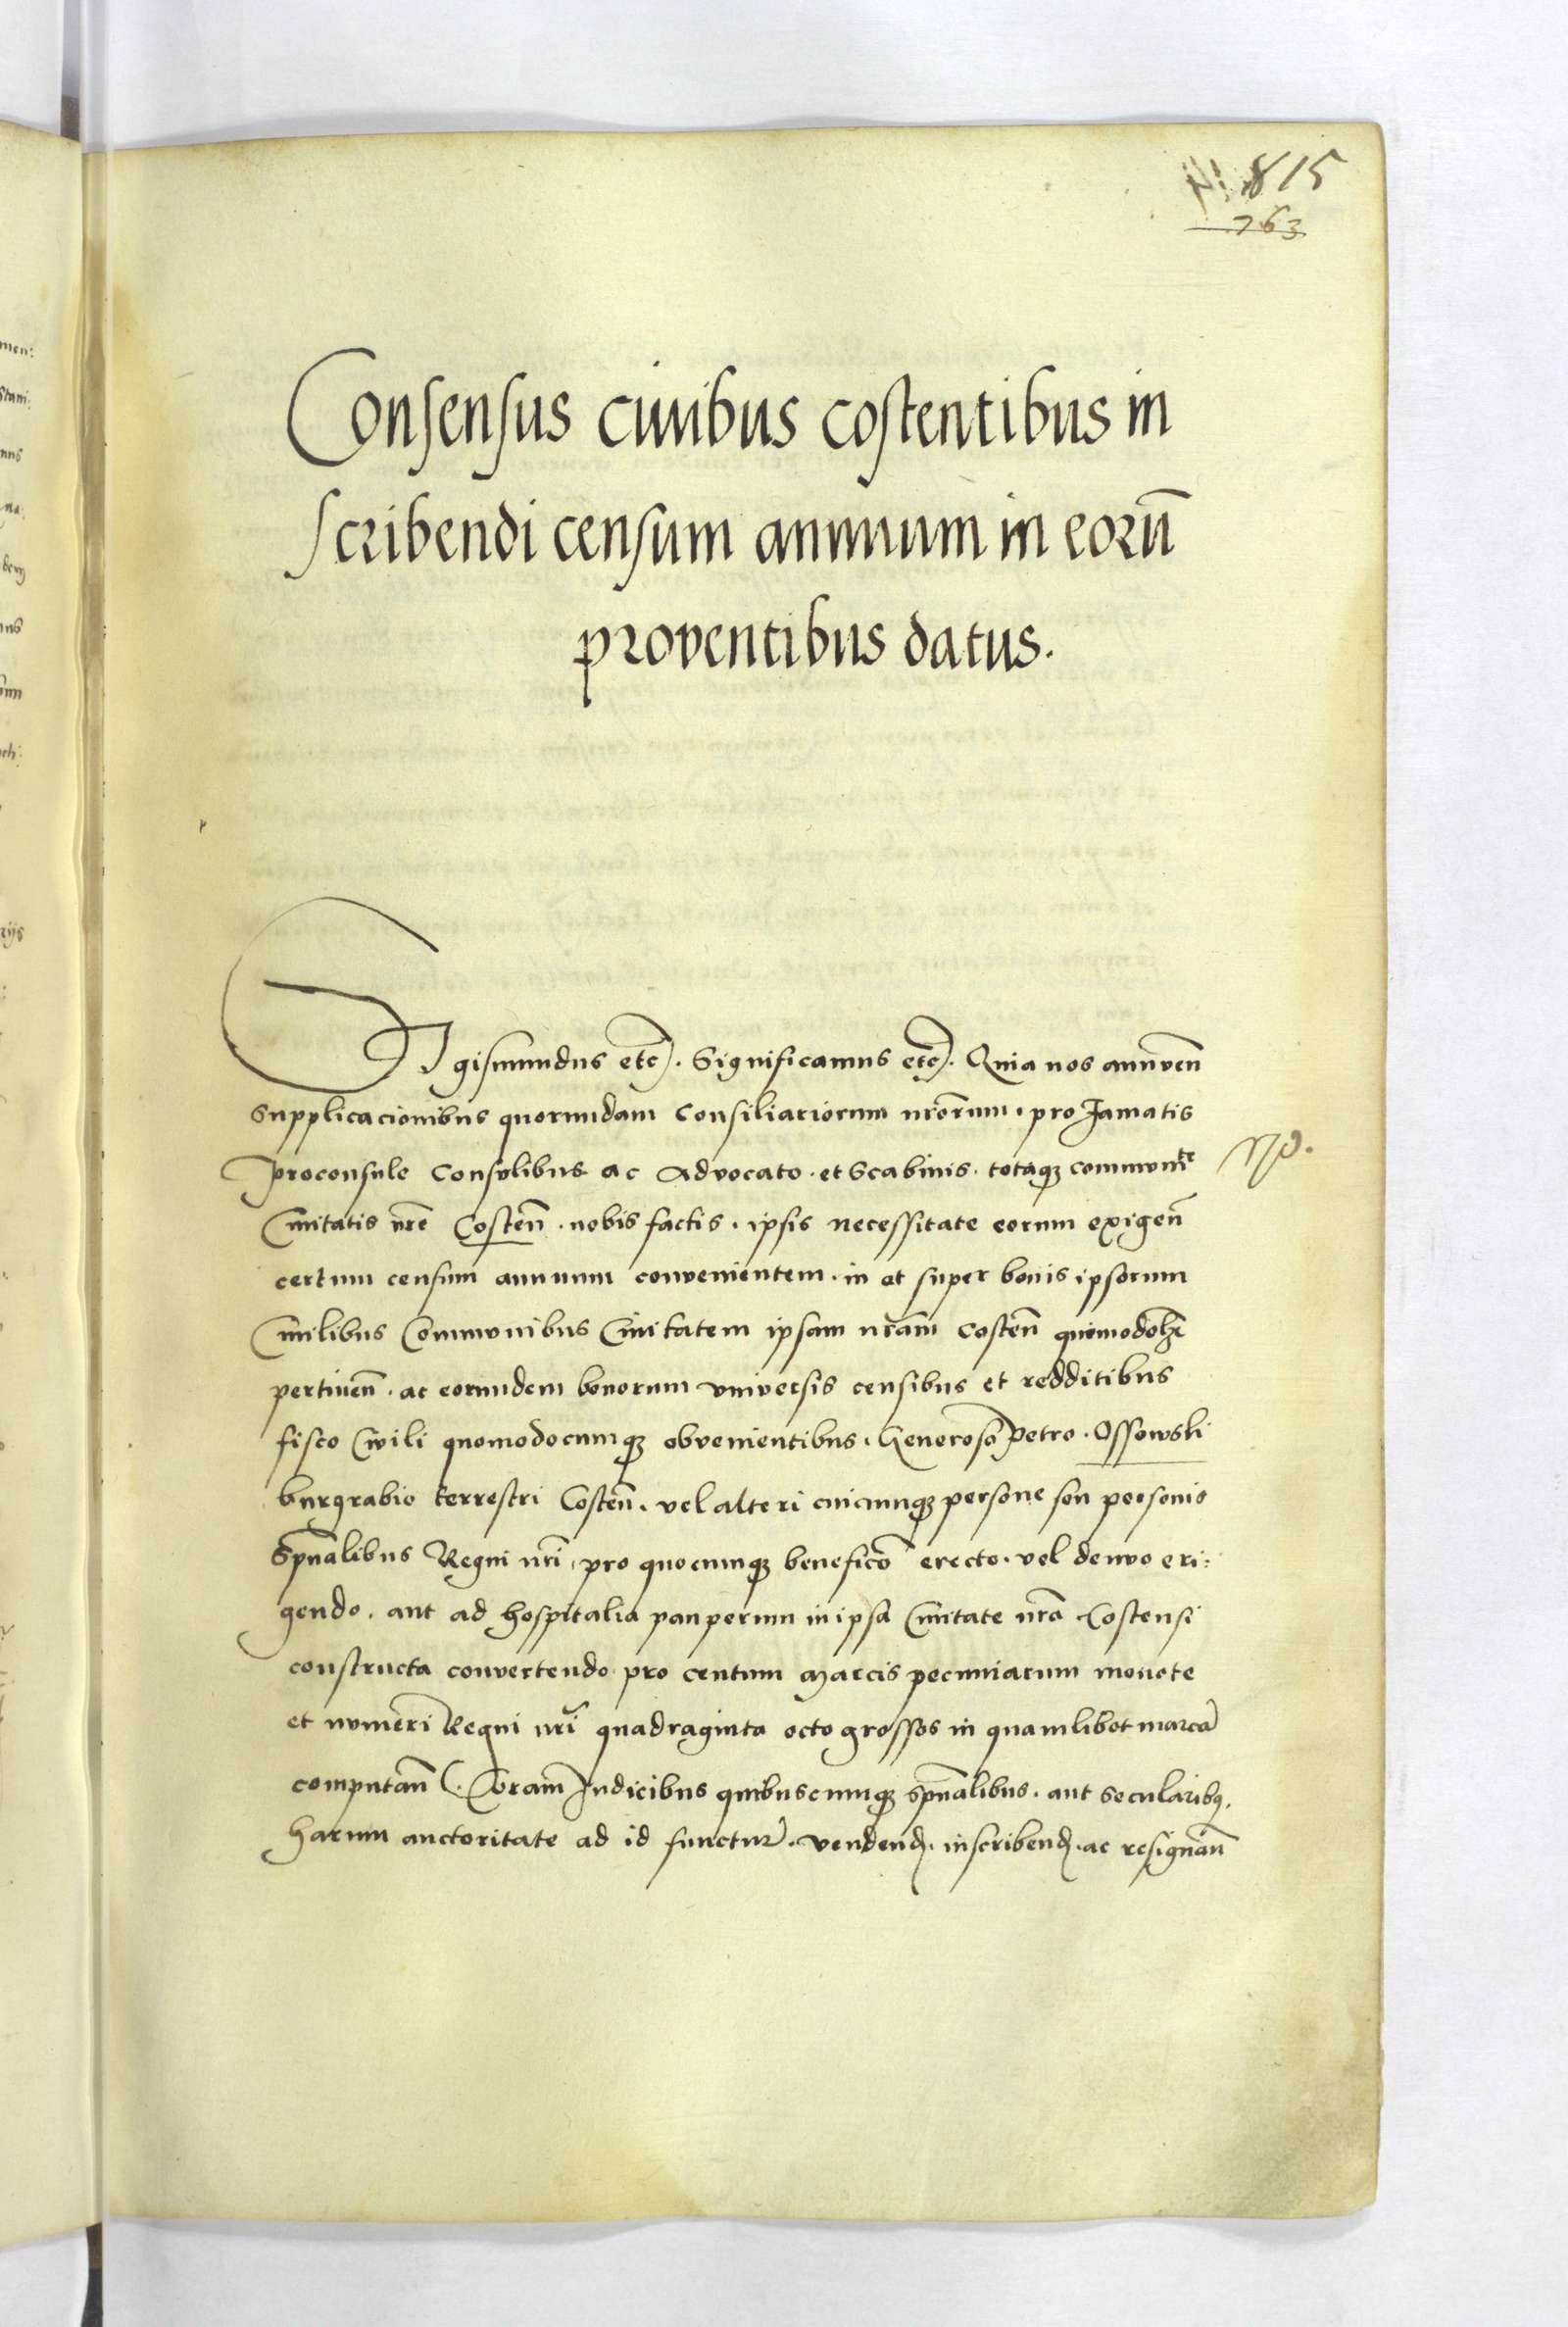 N: 815
763
Consensus civibus costentibus in
scribendi censum annuum in eorū
proventibus datus.
Sigismundus etc. Significamus etc. Quia nos annuen̄
supplicacionibus quorundam Consiliariorum nr̄orum. pro famatis
proconsule Consulibus ac Advocato. et Scabinis. totaqꝫ communite
Civitatis nr̄e Costen̄. nobis factis. ipsis necessitate eorum exigen̄
certum censum annuum convenientem. in et super bonis ipsorum
Civilibus Communibus Civitatem ipsam nr̄am Costen̄ quomodolꝫ
pertinen̄. ac eorundem bonorum vniversis censibus et redditibus
fisco Civili quomodocumqꝫ obvenientibus. Generoso Petro. Ossowski
burgrabio terrestri Costen̄. vel alteri cuicumqꝫ persone seu personis
Spūalibus Regni nr̄i. pro quocumqꝫ beneficō erecto. vel denuo eri:
gendo. aut ad hospitalia pauperum in ipsa Civitate nr̄a Costensi
constructa convertendo pro centum Marcis pecuniarum monete
et numeri Regni nr̄i quadraginta octo grossos in quamlibet marcā
computan̄ (. Coram Iudicibus quibuscumqꝫ spūalibus. aut secularibꝫ.
harum auctoritate ad id functur̄. vendend. inscribend. ac resignan̄